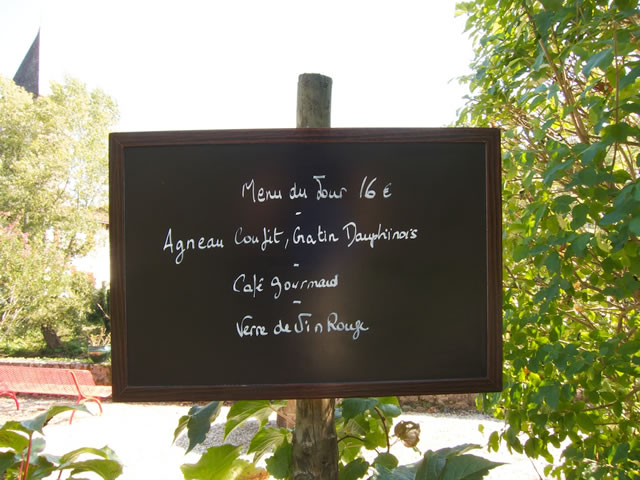 Menu du Jour 16 €
-
Agneau Confit, Gratin Dauphinois
-
Café gourmand
-
Verre de Vin Rouge